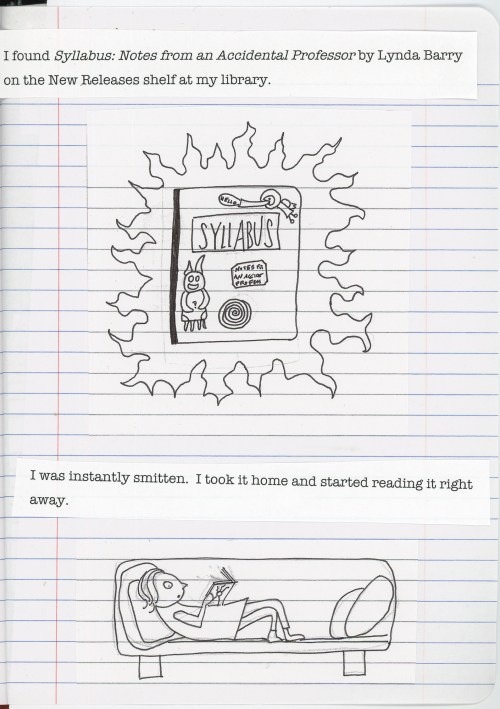 I found Syllabus: Notes from an Accidental Professor by Lynda Barry
on the New Releases shelf at my library.
HELLO
SYLLABUS
NOTES FR
AN ACCIDE
PROFESSR
I was instantly smitten.  I took it home and started reading it right
away.